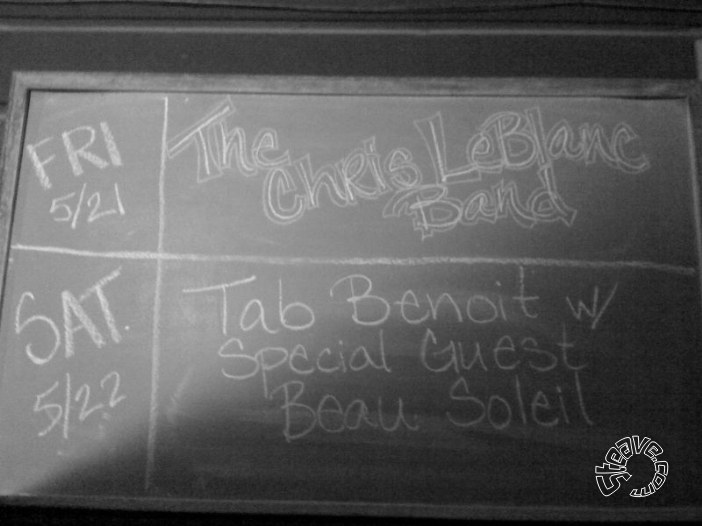 FRI
5/21
The
Chris LeBlanc
Band
SAT.
5/22
Tab Benoit w/
Special Guest
Beau Soleil
steave.com